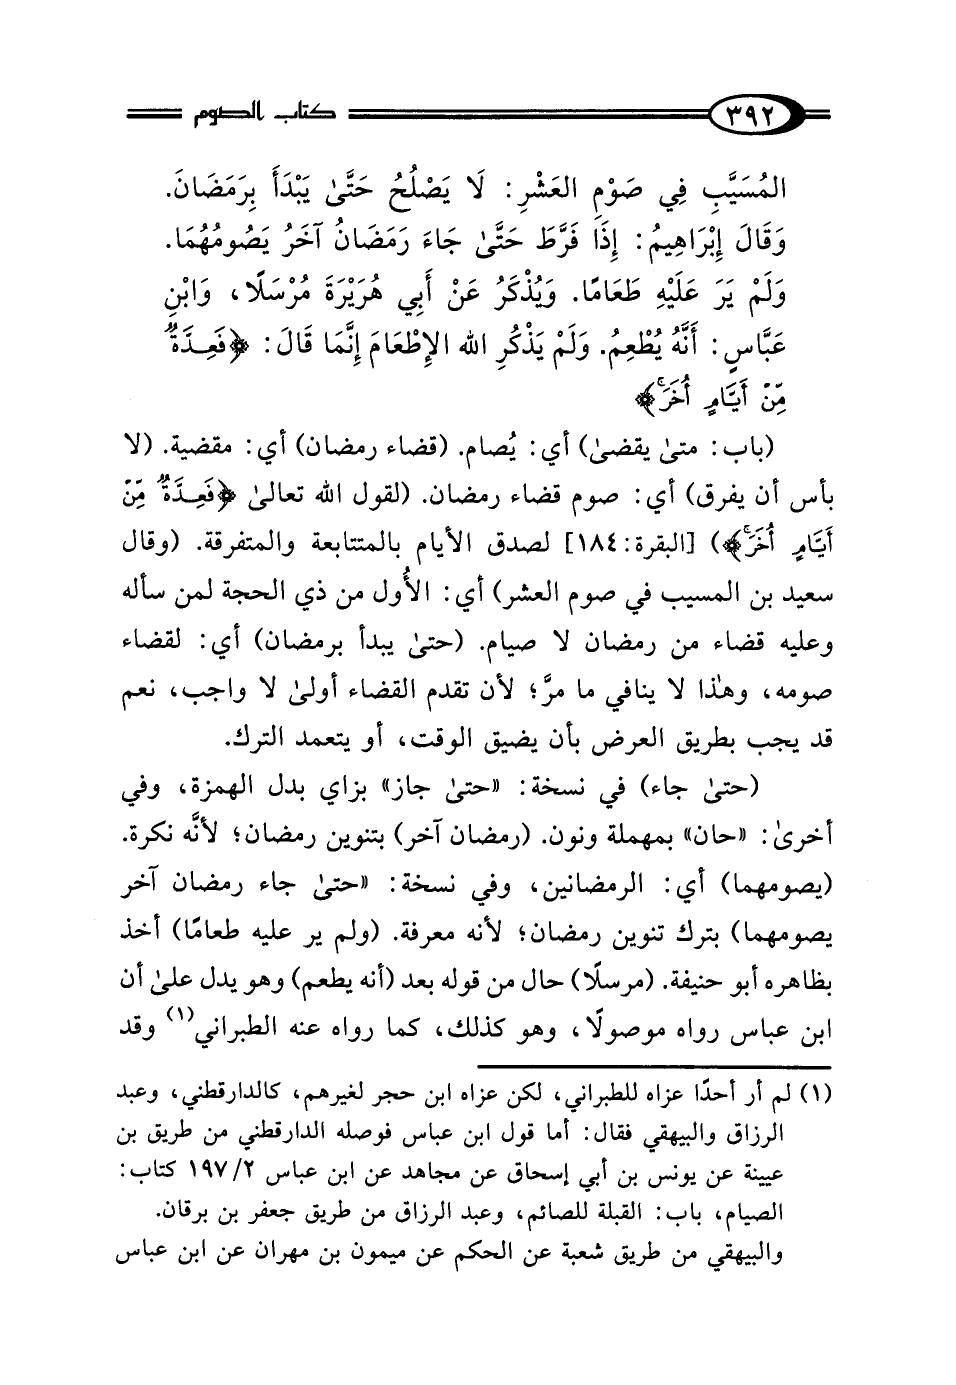 ٣٩٢ كتاب الصوم
المُسَيَّبِ فِي صَوْمِ العَشْرِ: لَا يَصْلُحُ حَتَّىٰ يَبْدَأَ بِرَمَضَانَ.
وَقَالَ إِبْرَاهِيمُ: إِذَا فَرَّطَ حَتَّىٰ جَاءَ رَمَضَانُ آخَرُ يَصُومُهُمَا.
وَلَمْ يَرَ عَلَيْهِ طَعَامًا. وَيُذْكَرُ عَنْ أَبِي هُرَيْرَةَ مُرْسَلًا، وَابْنِ
عَبَّاسٍ: أَنَّهُ يُطْعِمُ. وَلَمْ يَذْكُرِ الله الإِطْعَامَ إِنَّمَا قَالَ: ﴿فَعِدَّةٌ
مِّنْ أَيَّامٍ أُخَرَ﴾
(باب: متىٰ يقضىٰ) أي: يُصام. (قضاء رمضان) أي: مقضية. (لا
بأس أن يفرق) أي: صوم قضاء رمضان. (لقول الله تعالىٰ ﴿فَعِدَّةٌ مِّنْ
أَيَّامٍ أُخَرَ﴾) [البقرة: ١٨٤] لصدق الأيام بالمتتابعة والمتفرقة. (وقال
سعيد بن المسيب في صوم العشر) أي: الأُول من ذي الحجة لمن سأله
وعليه قضاء من رمضان لا صيام. (حتىٰ يبدأ برمضان) أي: لقضاء
صومه، وهٰذا لا ينافي ما مرَّ؛ لأن تقدم القضاء أولىٰ لا واجب، نعم
قد يجب بطريق العرض بأن يضيق الوقت، أو يتعمد الترك.
(حتىٰ جاء) في نسخة: «حتىٰ جاز» بزاي بدل الهمزة، وفي
أخرىٰ: «حان» بمهملة ونون. (رمضان آخر) بتنوين رمضان؛ لأنَّه نكرة.
(يصومهما) أي: الرمضانين، وفي نسخة: «حتىٰ جاء رمضان آخر
يصومهما) بترك تنوين رمضان؛ لأنه معرفة. (ولم ير عليه طعامًا) أخذ
بظاهره أبو حنيفة. (مرسلًا) حال من قوله بعد (أنه يطعم) وهو يدل علىٰ أن
ابن عباس رواه موصولًا، وهو كذلك، كما رواه عنه الطبراني(١) وقد
(١) لم أر أحدًا عزاه للطبراني، لكن عزاه ابن حجر لغيرهم، كالدارقطني، وعبد
الرزاق والبيهقي فقال: أما قول ابن عباس فوصله الدارقطني من طريق بن
عيينة عن يونس بن أبي إسحاق عن مجاهد عن ابن عباس ١٩٧/٢ كتاب:
الصيام، باب: القبلة للصائم، وعبد الرزاق من طريق جعفر بن برقان.
والبيهقي من طريق شعبة عن الحكم عن ميمون بن مهران عن ابن عباس